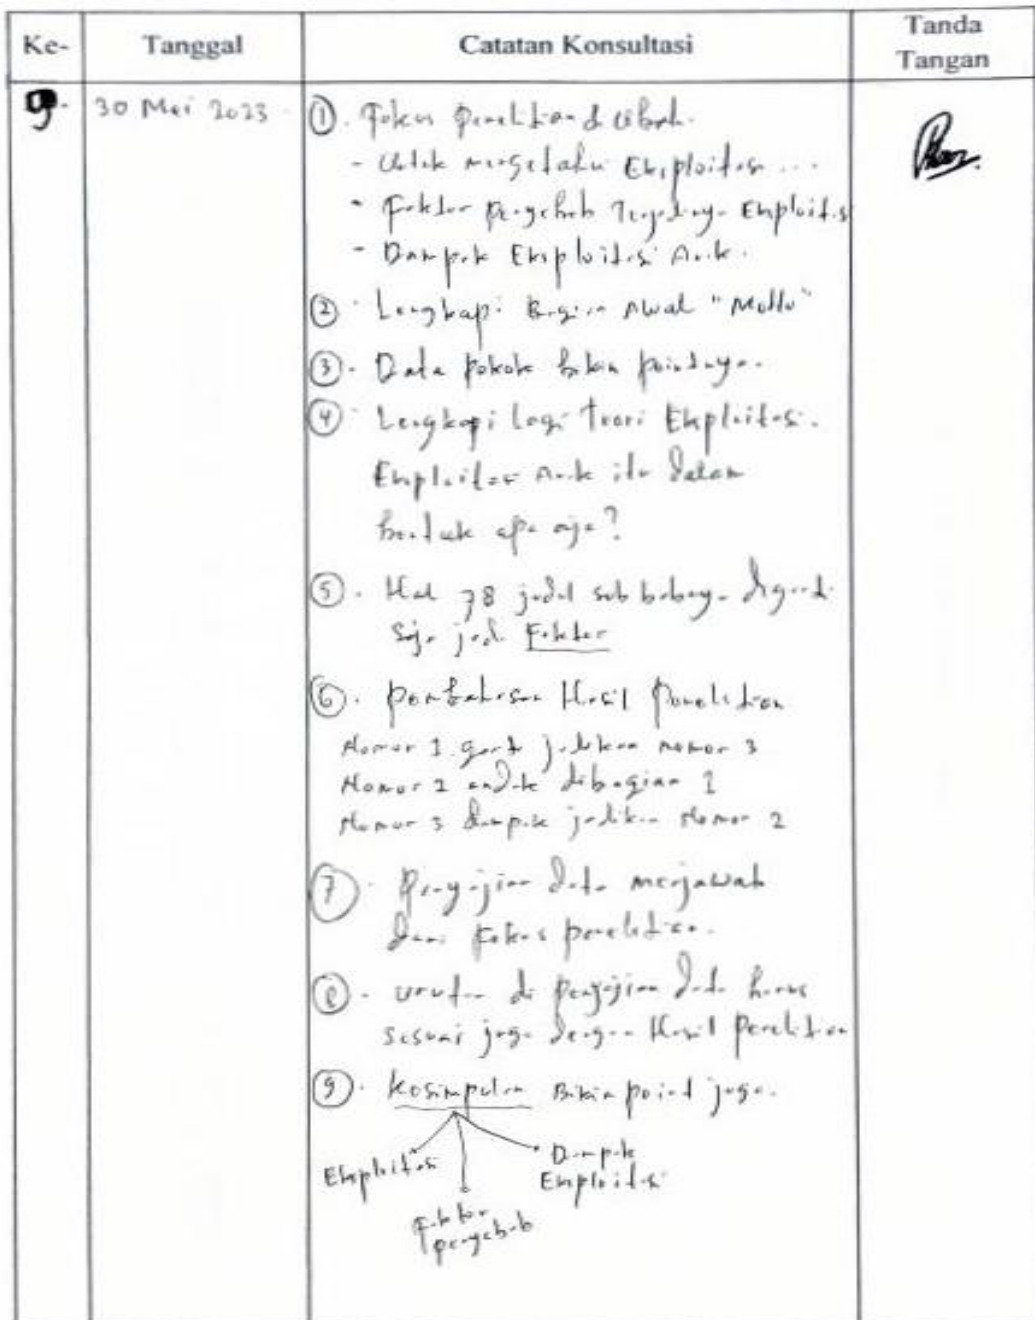 Ke-
Tanggal
Catatan Konsultasi
Tanda
Tangan
9.
30 Mei 2023
①. Fokus Penelitian di Ubah.
- Untuk mengetahui Eksploitasi ...
- Faktor Penyebab Terjadinya Eksploitasi
- Dampak Eksploitasi Anak.
② Lengkapi Bagian Awal "Motto"
③. Data pokok bikin pointnya.
④ Lengkapi lagi Teori Eksploitasi.
Eksploitasi Anak itu dalam
bentuk apa aja?
⑤. Hal 78 judul sub babnya diganti
saja jadi Faktor
⑥. pembahasan Hasil Penelitian
Nomor 1 ganti jadikan nomor 3
Nomor 2 dibagian 1
Nomor 3 dampak jadikan Nomor 2
⑦. Penyajian data menjawab
dari Fokus penelitian.
⑧. urutan di penyajian data harus
sesuai juga dengan Hasil Penelitian
⑨. Kesimpulan Bikin point juga.
Eksploitasi
Faktor
penyebab
Dampak
Eksploitasi